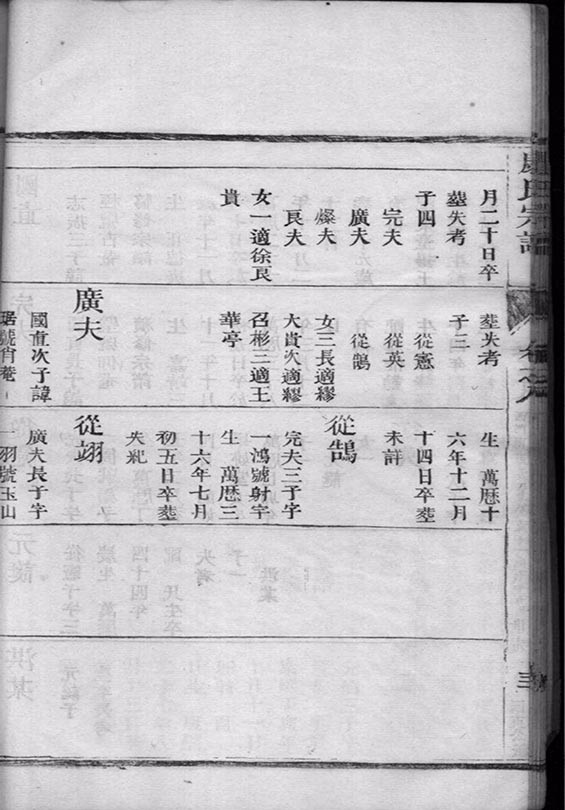 盧氏宗譜
月二十日卒
塟失考
子四
完夫
廣夫
燦夫
良夫
女一適徐良
貴
塟失考
子三
從憲
從英
從鵠
女三長適繆
大貴次適繆
召彬三適王
華亭
廣夫
國直次子諱
琚號肖菴
生 萬厯十
六年十二月
十四日卒塟
未詳
從鵠
完夫三子字
一鴻號射宇
生 萬厯三
十六年七月
初五日卒塟
失紀
從翊
廣夫長子字
一羽號玉山